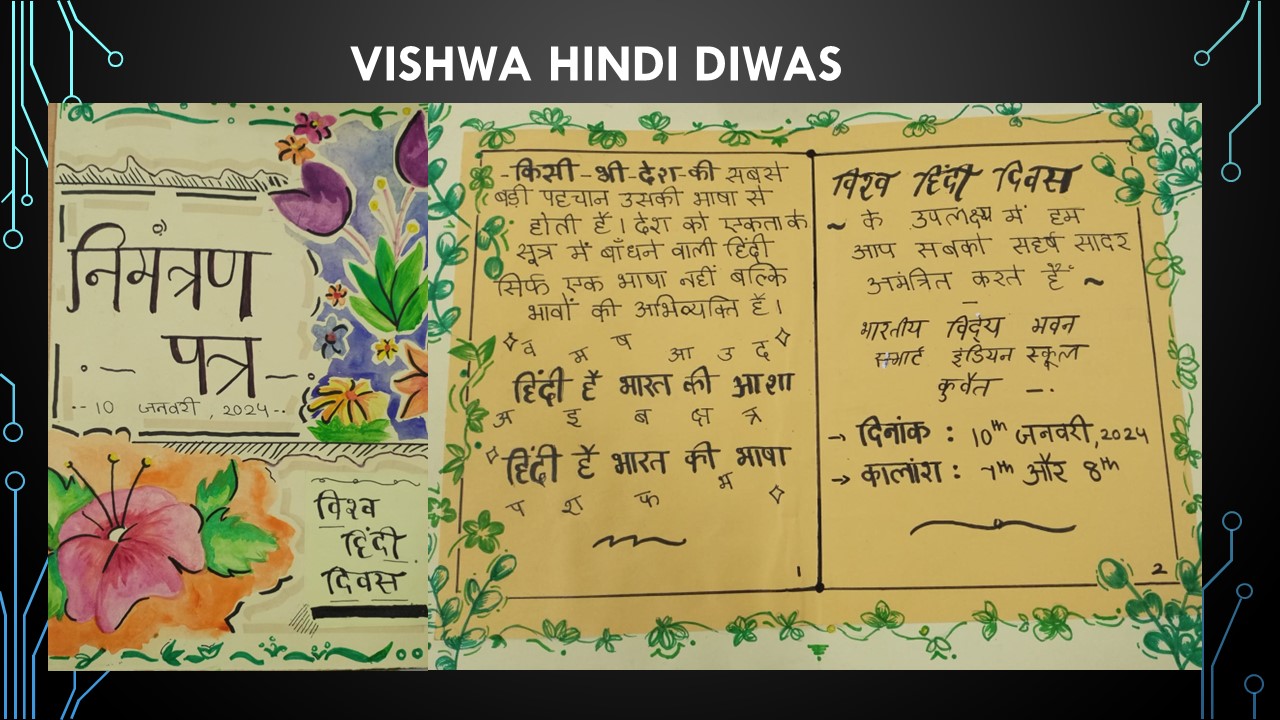 VISHWA HINDI DIWAS
निमंत्रण
पत्र
-- 10 जनवरी, 2024 --
विश्व
हिंदी
दिवस
-किसी-भी-देश-की सबसे
बड़ी पहचान उसकी भाषा से
होती हैं। देश को एकता के
सूत्र में बाँधने वाली हिंदी
सिर्फ एक भाषा नहीं बल्कि
भावों की अभिव्यक्ति हैं।
व म ष आ उ द
हिंदी हैं भारत की आशा
अ इ ब क्ष त्र
हिंदी हैं भारत की भाषा
प श क म
1
विश्व हिंदी दिवस
~ के उपलक्ष्य में हम
आप सबको सहर्ष सादर
अमंत्रित करते हैं ~
भारतीय विद्य भवन
स्मार्ट इंडियन स्कूल
कुवैत -.
→ दिनांक : 10th जनवरी, 2024
→ कालांश : 7th और 8th
2